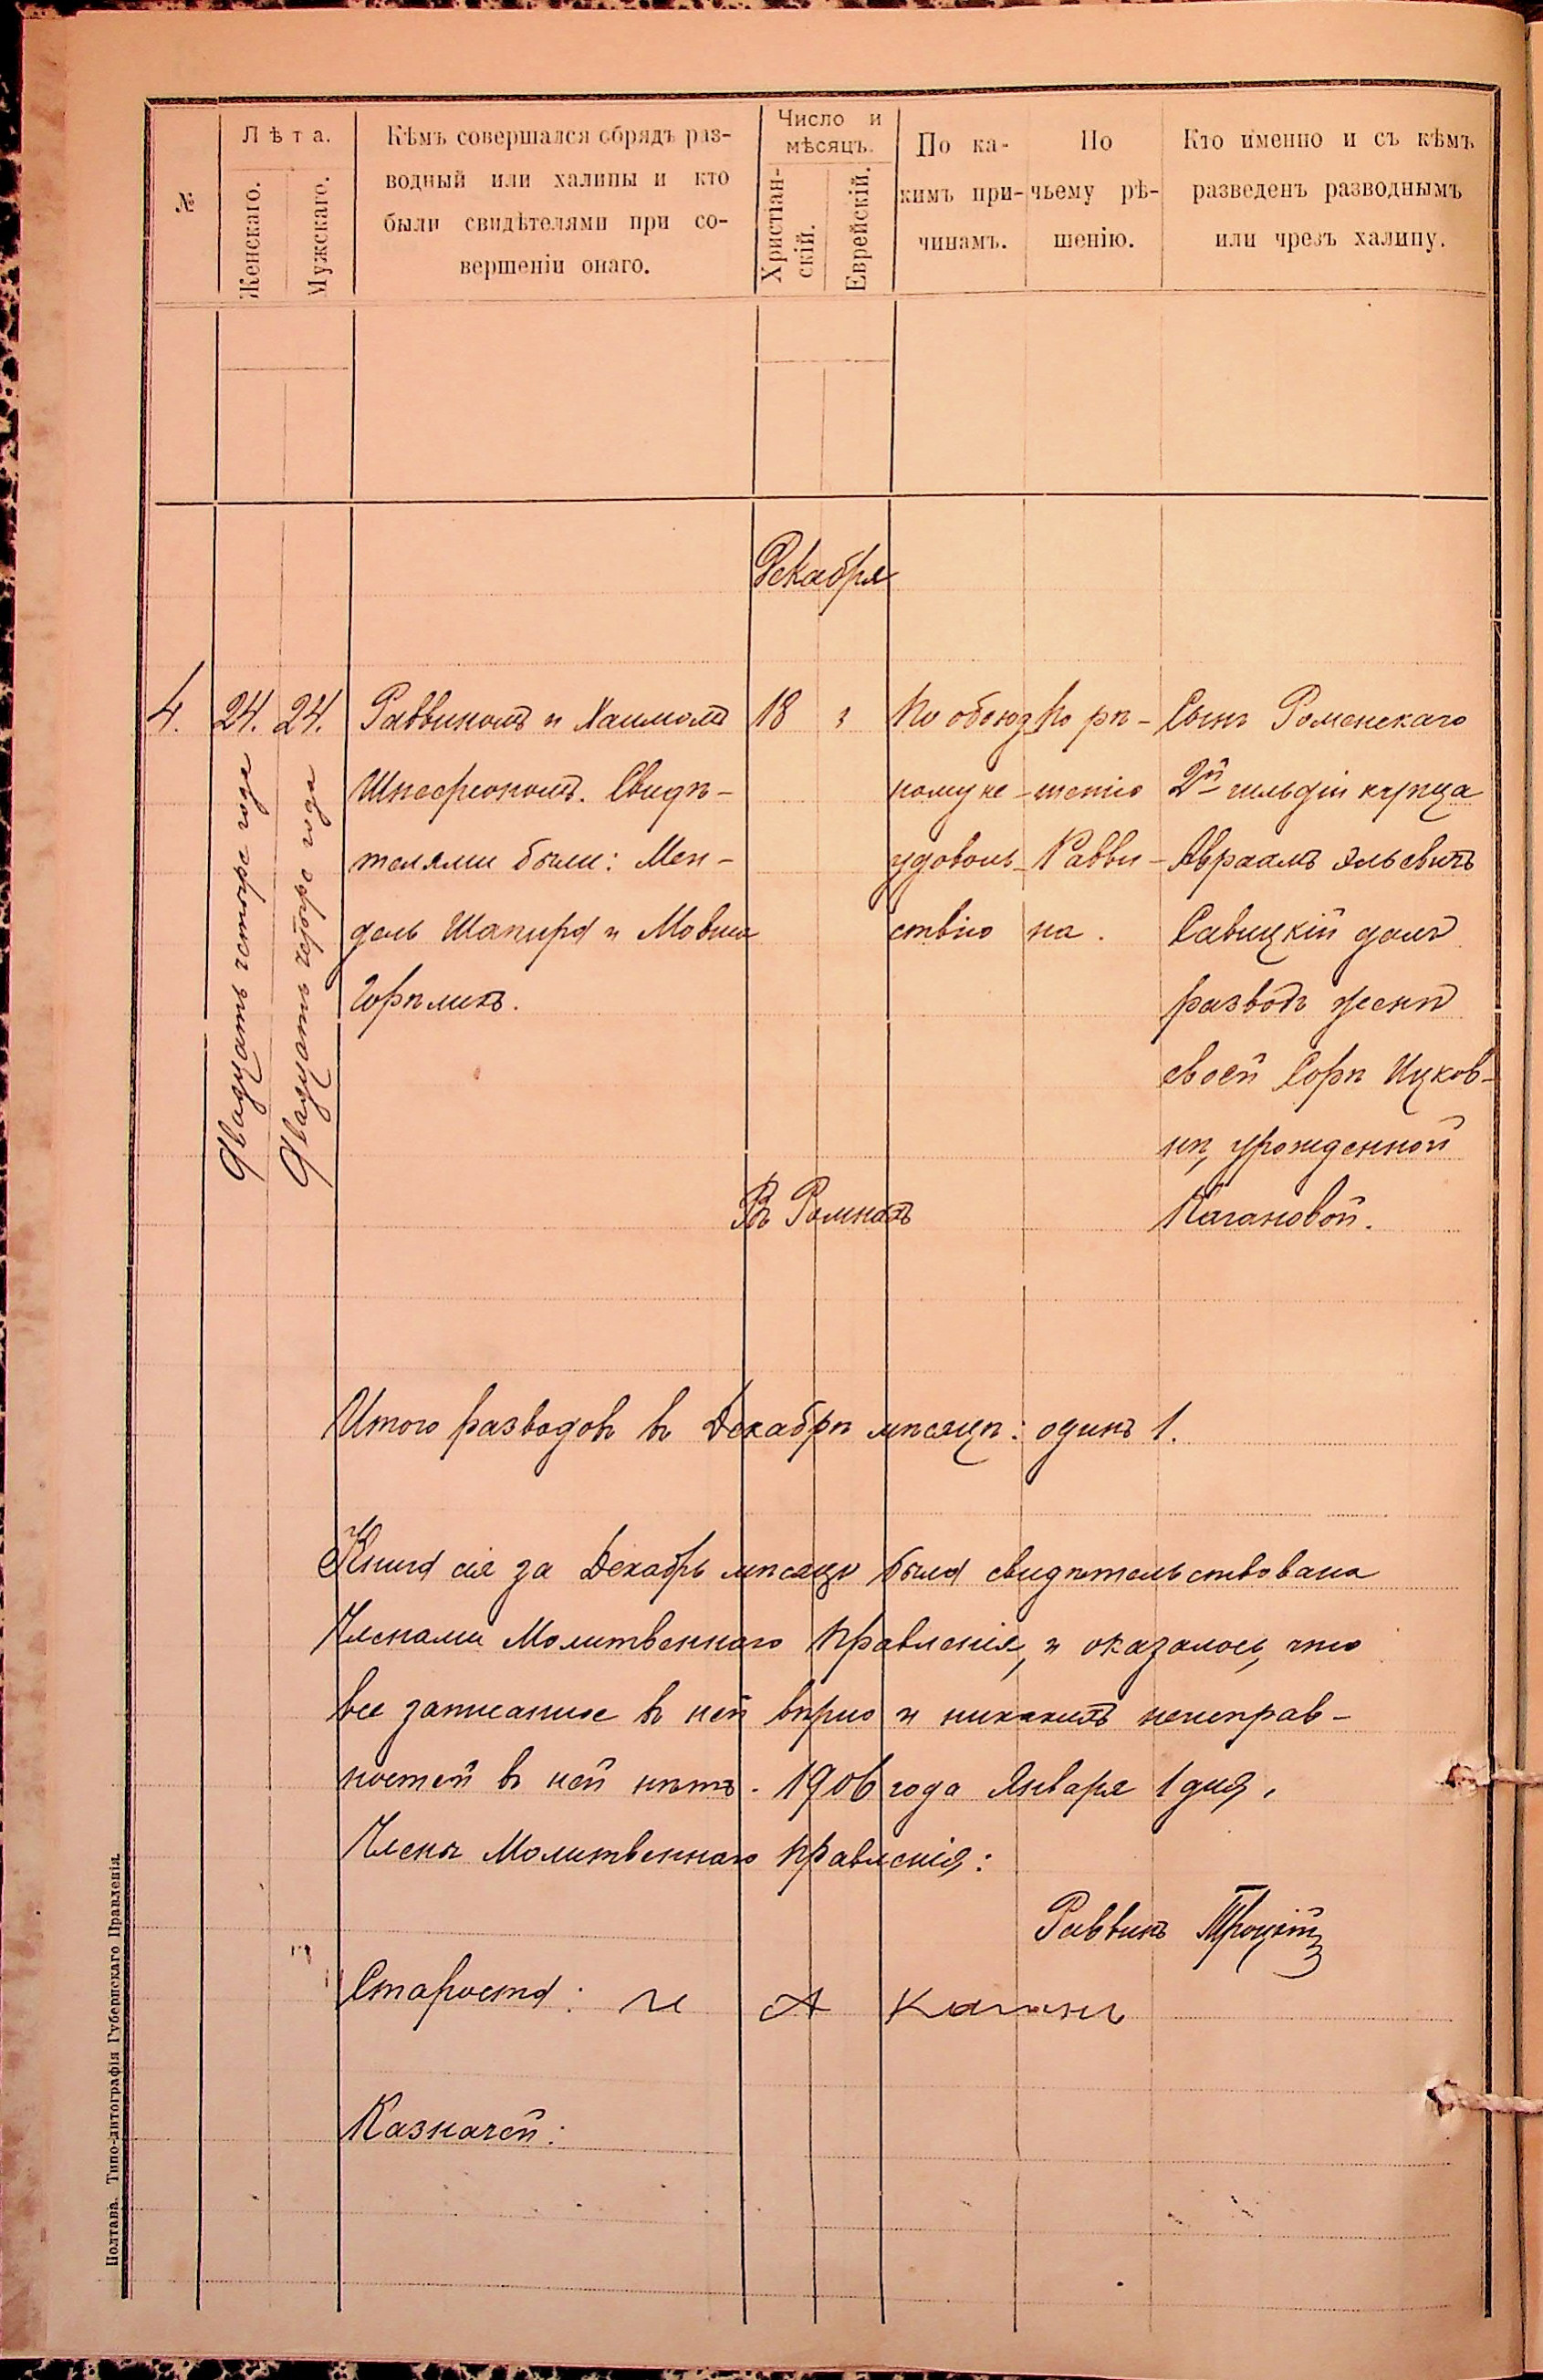 №
Лѣта.
Женскаго.
Мужскаго.
Кѣмъ совершался обрядъ раз-
водный или халицы и кто
были свидѣтелями при со-
вершеніи онаго.
Число и
мѣсяцъ.
Христіан-
скій.
Еврейскій.
По ка-
кимъ при-
чинамъ.
По
чьему рѣ-
шенію.
Кто именно и съ кѣмъ
разведенъ разводнымъ
или чрезъ халицу.
Декабря
4.
24.
Двадцать четыре года
24.
Двадцать четыре года
Раввиномъ и Хаимомъ
Шнеерсономъ. Свидѣ-
телями были: Мен-
дель Шапиро и Мовша
Горѣликъ.
18
3
По обоюд
ному не-
удоволь-
ствію
По рѣ-
шенію
Равви-
на.
Сынъ Роменскаго
2й гильдіи купца
Авраамъ Эльевичъ
Савицкій далъ
разводъ женѣ
своей Сорѣ Ицков-
нѣ, урожденной
Кагановой.
Въ Ромнахъ
Итого разводовъ въ Декабрѣ мѣсяцѣ: одинъ 1.
Книга сія за Декабрь мѣсяцъ была свидѣтельствована
Членами Молитвеннаго Правленія, и оказалось, что
все записанное въ ней вѣрно и никакихъ неисправ-
ностей въ ней нѣтъ. 1906 года Января 1 дня.
Члены Молитвеннаго Правленія:
Раввинъ Троцкій
Староста: И А Каганъ
Казначей:
Полтава. Типо-литографія Губернскаго Правленія.